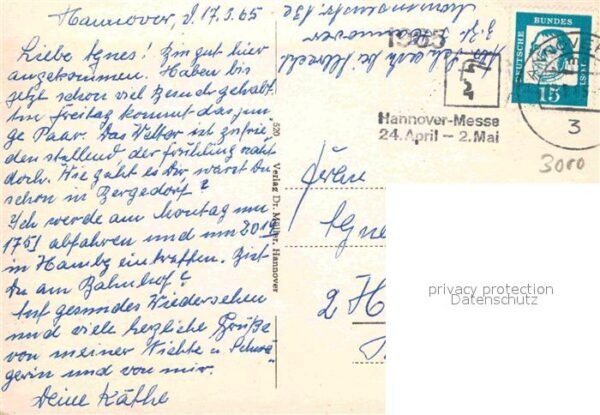 Hannover, d. 17.3.65
Liebe Agnes! Bin gut hier
angekommen. Haben bis
jetzt schon viel Besuch gehabt.
Am Freitag kommt das jun-
ge Paar. Das Wetter ist zufrie-
den stellend der Frühling naht
doch. Wie geht es Dir warst Du
schon in Bergedorf?
Ich werde am Montag um
1751 abfahren und um 2014
in Hambg eintreffen. Bist
Du am Bahnhof?
Auf gesundes Wiedersehen
und viele herzliche Grüße
von meiner Nichte u. Schwä-
gerin und von mir.
Deine Käthe
520 Verlag Dr. Müller, Hannover
1965
Hannover-Messe
24. April – 2. Mai
DEUTSCHE BUNDESPOST
15
3
3000
Agne
2 H
privacy protection
Datenschutz